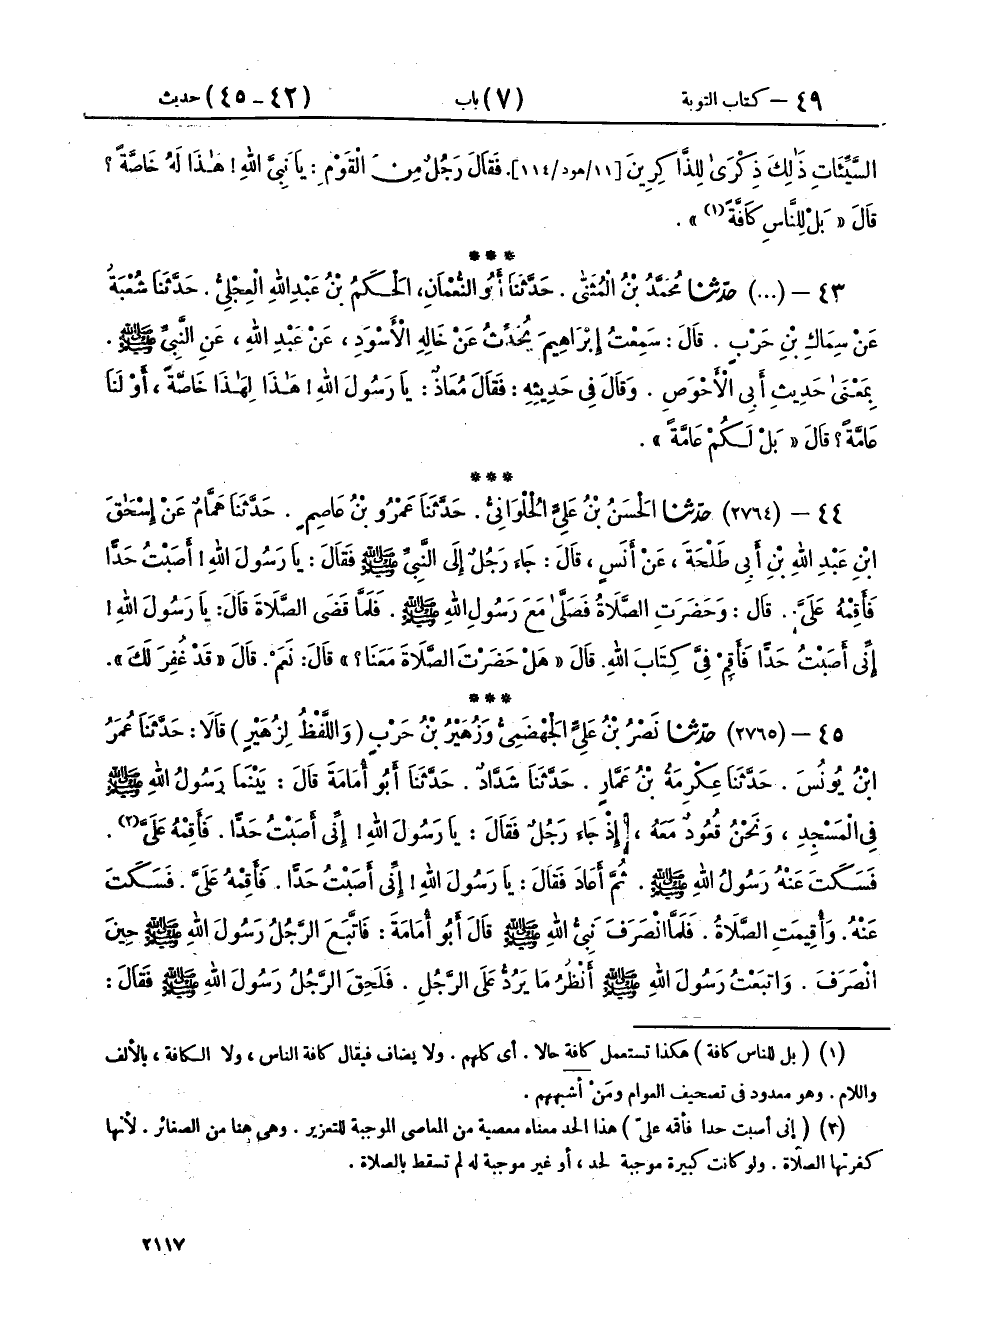 ٤٩ – كتاب التوبة (٧) باب (٤٢ – ٤٥) حديث
السَّيِّئَاتِ ذَٰلِكَ ذِكْرَىٰ لِلذَّاكِرِينَ [١١/هود/١١٤]. فَقَالَ رَجُلٌ مِنَ الْقَوْمِ : يَا نَبِيَّ اللهِ ! هَٰذَا لَهُ خَاصَّةً ؟
قَالَ « بَلْ لِلنَّاسِ كَافَّةً (١) » .
* * *
٤٣ – (...) حَدَّثَنَا مُحَمَّدُ بْنُ الْمُثَنَّىٰ . حَدَّثَنَا أَبُو النُّعْمَانِ، الْحَكَمُ بْنُ عَبْدِ اللهِ الْعِجْلِيُّ . حَدَّثَنَا شُعْبَةُ
عَنْ سِمَاكِ بْنِ حَرْبٍ . قَالَ : سَمِعْتُ إِبْرَاهِيمَ يُحَدِّثُ عَنْ خَالِهِ الْأَسْوَدِ ، عَنْ عَبْدِ اللهِ ، عَنِ النَّبِيِّ ﷺ .
بِمَعْنَىٰ حَدِيثِ أَبِي الْأَحْوَصِ . وَقَالَ فِي حَدِيثِهِ : فَقَالَ مُعَاذٌ : يَا رَسُولَ اللهِ ! هَٰذَا لِهَٰذَا خَاصَّةً ، أَوْ لَنَا
عَامَّةً ؟ قَالَ « بَلْ لَكُمْ عَامَّةً » .
* * *
٤٤ – (٢٧٦٤) حَدَّثَنَا الْحَسَنُ بْنُ عَلِيٍّ الْحُلْوَانِيُّ . حَدَّثَنَا عَمْرُو بْنُ عَاصِمٍ . حَدَّثَنَا هَمَّامٌ عَنْ إِسْحَٰقَ
ابْنِ عَبْدِ اللهِ بْنِ أَبِي طَلْحَةَ ، عَنْ أَنَسٍ ، قَالَ : جَاءَ رَجُلٌ إِلَى النَّبِيِّ ﷺ فَقَالَ : يَا رَسُولَ اللهِ ! أَصَبْتُ حَدًّا
فَأَقِمْهُ عَلَيَّ . قَالَ : وَحَضَرَتِ الصَّلَاةُ فَصَلَّىٰ مَعَ رَسُولِ اللهِ ﷺ . فَلَمَّا قَضَى الصَّلَاةَ قَالَ: يَا رَسُولَ اللهِ !
إِنِّي أَصَبْتُ حَدًّا فَأَقِمْ فِيَّ كِتَابَ اللهِ. قَالَ « هَلْ حَضَرْتَ الصَّلَاةَ مَعَنَا؟ » قَالَ: نَعَمْ. قَالَ « قَدْ غُفِرَ لَكَ ».
* * *
٤٥ – (٢٧٦٥) حَدَّثَنَا نَصْرُ بْنُ عَلِيٍّ الْجَهْضَمِيُّ وَزُهَيْرُ بْنُ حَرْبٍ ( وَاللَّفْظُ لِزُهَيْرٍ ) قَالَا : حَدَّثَنَا عُمَرُ
ابْنُ يُونُسَ . حَدَّثَنَا عِكْرِمَةُ بْنُ عَمَّارٍ . حَدَّثَنَا شَدَّادٌ . حَدَّثَنَا أَبُو أُمَامَةَ قَالَ : بَيْنَمَا رَسُولُ اللهِ ﷺ
فِي الْمَسْجِدِ ، وَنَحْنُ قُعُودٌ مَعَهُ ، إِذْ جَاءَ رَجُلٌ فَقَالَ : يَا رَسُولَ اللهِ ! إِنِّي أَصَبْتُ حَدًّا . فَأَقِمْهُ عَلَيَّ (٢) .
فَسَكَتَ عَنْهُ رَسُولُ اللهِ ﷺ . ثُمَّ أَعَادَ فَقَالَ : يَا رَسُولَ اللهِ ! إِنِّي أَصَبْتُ حَدًّا . فَأَقِمْهُ عَلَيَّ . فَسَكَتَ
عَنْهُ. وَأُقِيمَتِ الصَّلَاةُ . فَلَمَّا انْصَرَفَ نَبِيُّ اللهِ ﷺ قَالَ أَبُو أُمَامَةَ : فَاتَّبَعَ الرَّجُلُ رَسُولَ اللهِ ﷺ حِينَ
انْصَرَفَ . وَاتَّبَعْتُ رَسُولَ اللهِ ﷺ أَنْظُرُ مَا يَرُدُّ عَلَى الرَّجُلِ . فَلَحِقَ الرَّجُلُ رَسُولَ اللهِ ﷺ فَقَالَ :
(١) ( بل للناس كافة ) هكذا تستعمل كافة حالا . أى كلهم . ولا يضاف فيقال كافة الناس ، ولا الكافة ، بالألف
واللام . وهو معدود فى تصحيف العوام ومَنْ أشبههم .
(٢) ( إنى أصبت حدا فأقمه علىّ ) هذا الحد معناه معصية من المعاصى الموجبة للتعزير . وهى هنا من الصغائر . لأنها
كفرتها الصلاة . ولو كانت كبيرة موجبة لحد ، أو غير موجبة له لم تسقط بالصلاة .
٢١١٧